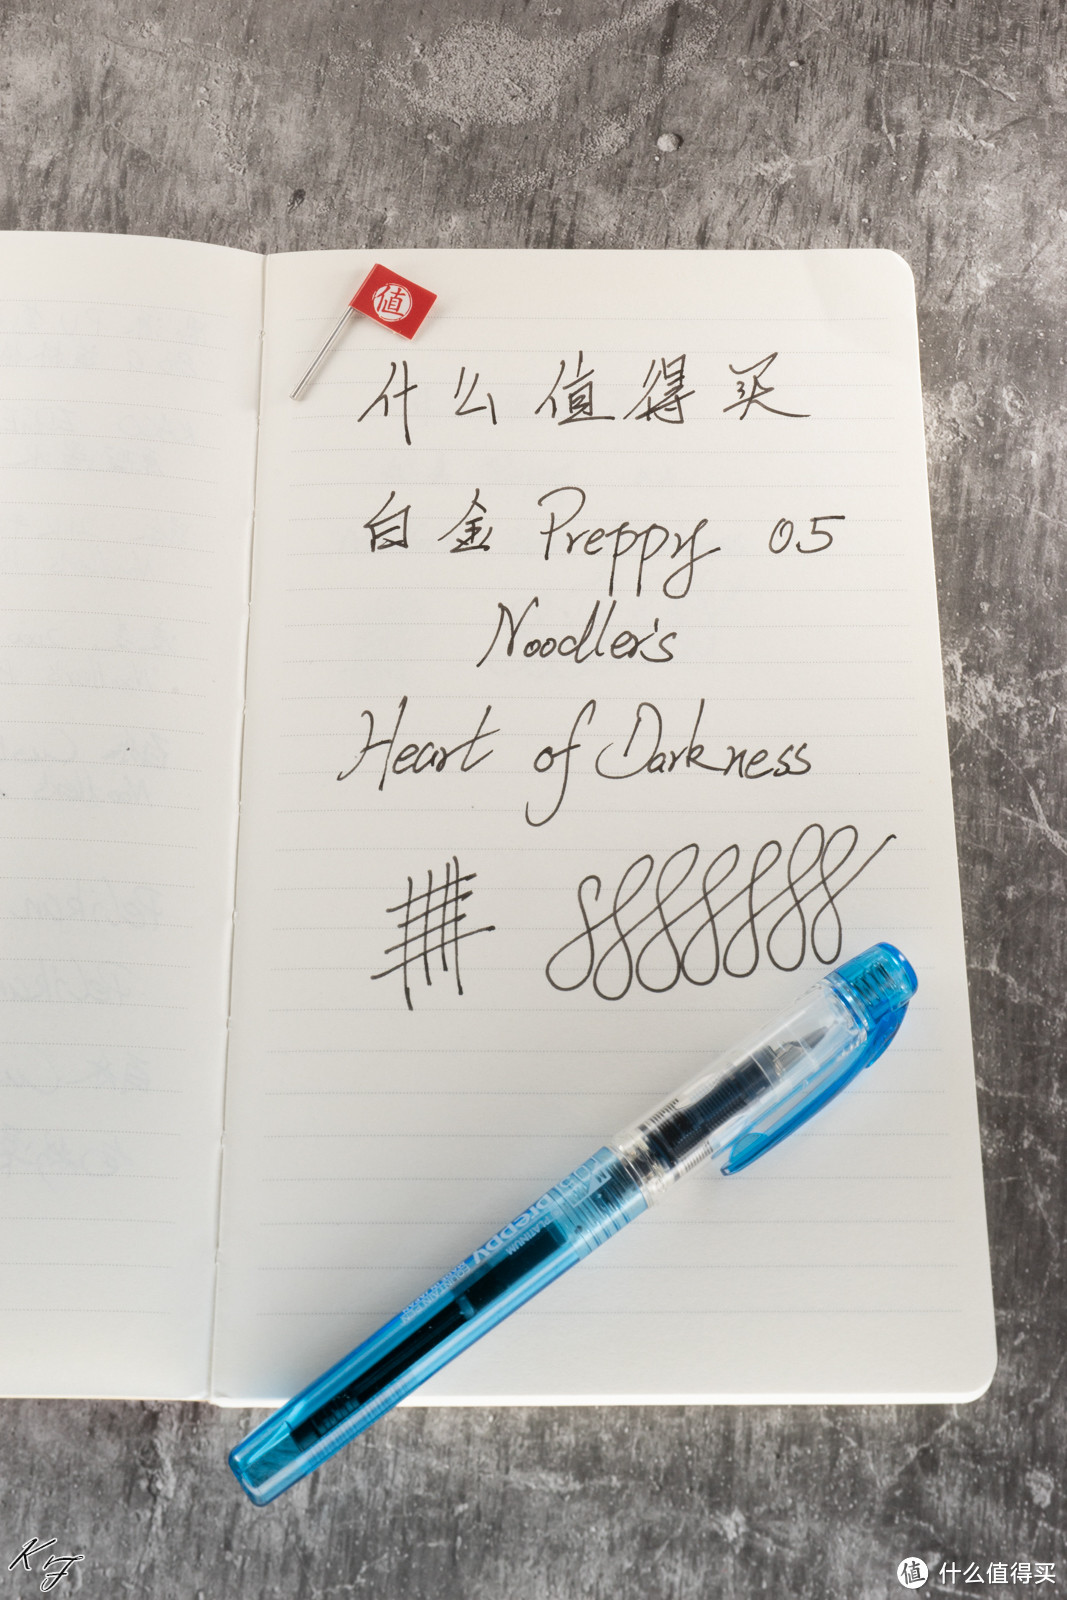 值
什么值得买
白金 Preppy 05
Noodler's
Heart of Darkness
preppy
PLATINUM
FOUNTAIN PEN
KF
值 什么值得买